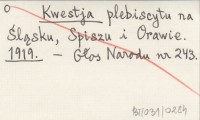 Kwestja plebiscytu na
Śląsku, Spiszu i Orawie.
1919. — Głos Narodu nr 243.